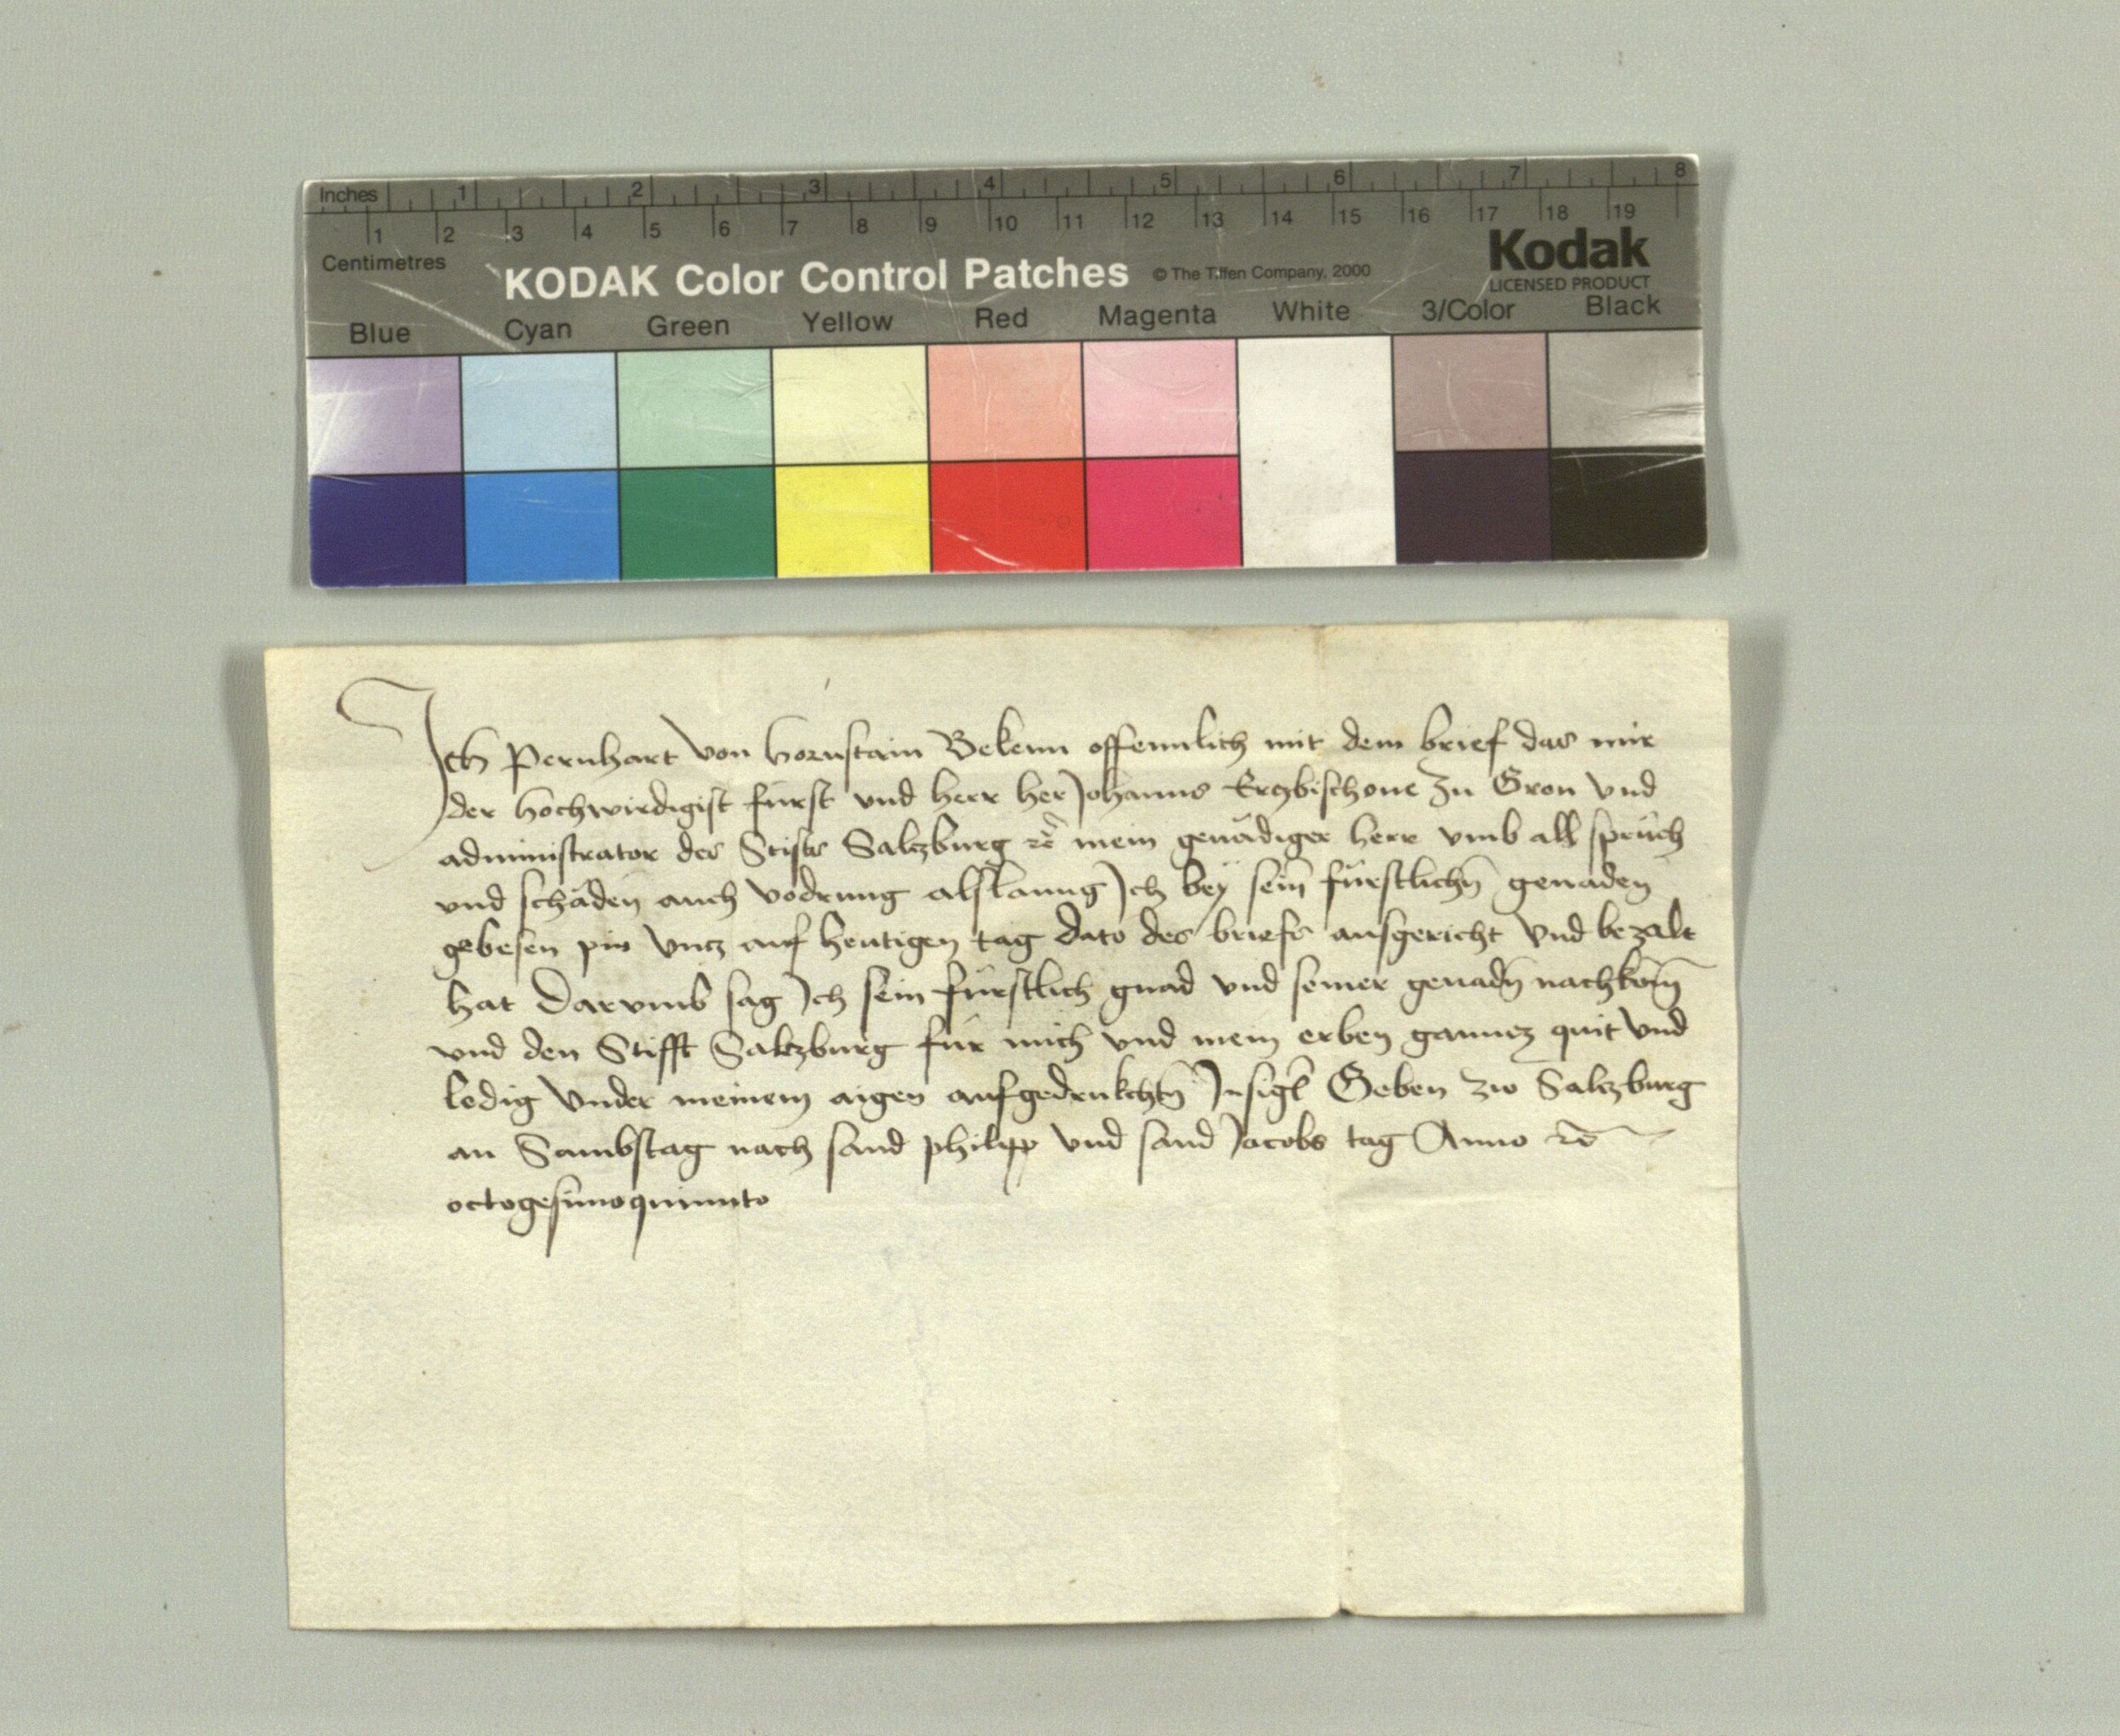 Inches 1 2 3 4 5 6 7 8
1 2 3 4 5 6 7 8 9 10 11 12 13 14 15 16 17 18 19
Centimetres
KODAK Color Control Patches © The Tiffen Company, 2000
Kodak
LICENSED PRODUCT
Blue Cyan Green Yellow Red Magenta White 3/Color Black
Ich Pernhart von hornstain Bekenn offennlich mit dem brief das mir
der hochwirdigist fürst vnd herr her Johanns Ertzbischoue zu Gron vnd
administrator des Stifts Saltzburg ꝛc̃ mein genädiger herr vmb all sprüch
vnd schäden auch vodrung alslanng Ich bey sein̄ fürstlichn̄ genaden
gebesen pin vntz auf heutigen tag dato des briefs ausgericht vnd bezalt
hat Darvmb sag Ich sein fürstlich gnad vnd seiner genadn̄ nachkom̄
vnd den Stifft Saltzburg für mich vnd mein erben ganntz quit vnd
ledig vnder meinem aigen aufgedrukchtn̄ Insigl̄ Geben zw Saltzburg
an Sambstag nach sand philipp vnd sand Jacobs tag Anno ꝛc̄
octogesimoquinnto